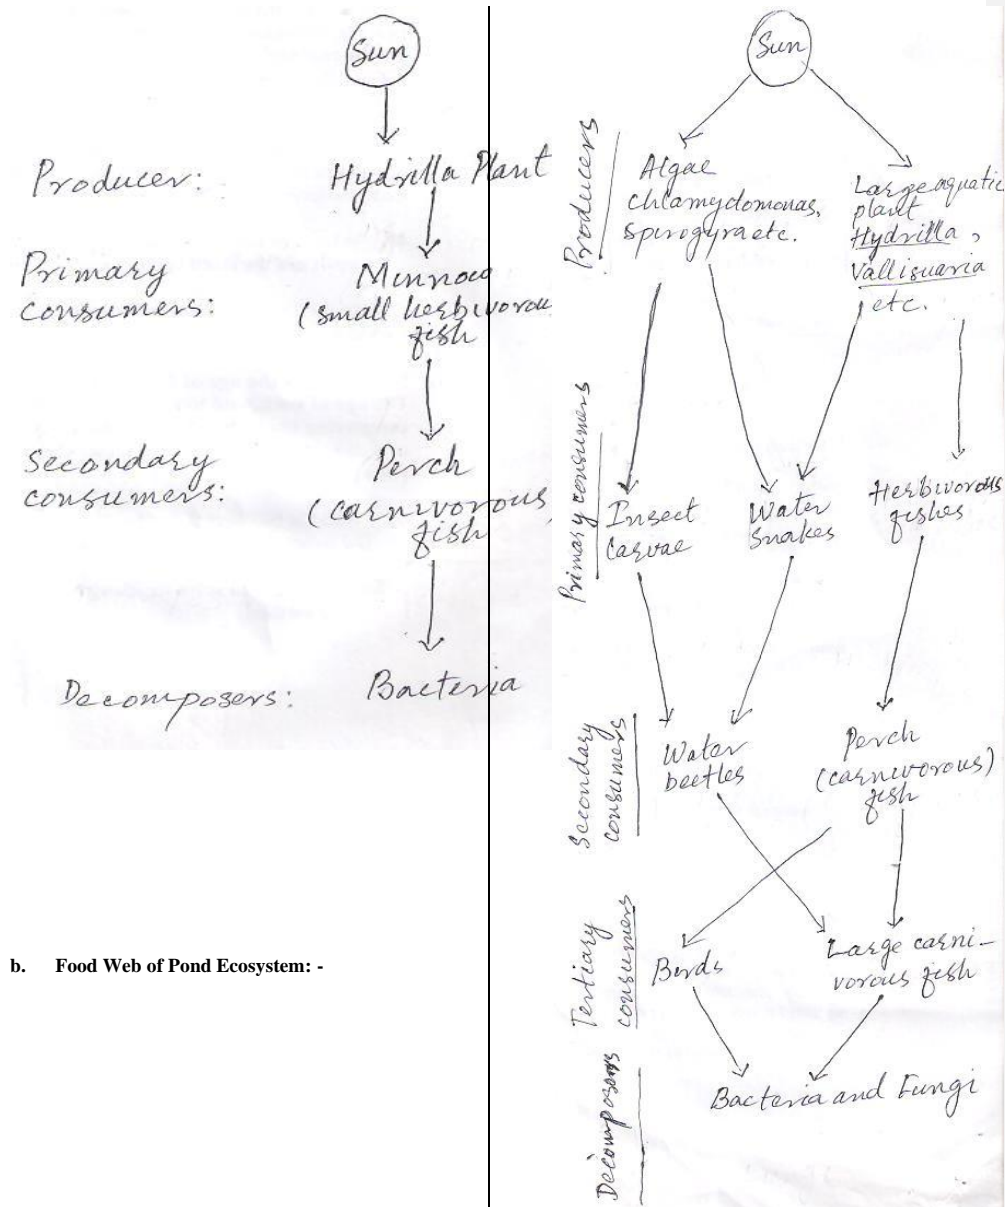 Sun
Producer:
Hydrilla Plant
Primary
consumers:
Minnow
(small herbivorou
fish
Secondary
consumers:
Perch
(carnivorous
fish
Decomposers:
Bacteria
b. Food Web of Pond Ecosystem: -
Sun
Producers
Algae
chlamydomonas,
spirogyra etc.
Large aquatic
plant
Hydrilla,
Vallisuaria
etc.
Primary consumers
Insect
Larvae
Water
Snakes
Herbivorous
fishes
Secondary
consumers
Water
beetles
Perch
(carnivorous)
fish
Tertiary
consumers
Birds
Large carni-
vorous fish
Decomposers
Bacteria and Fungi